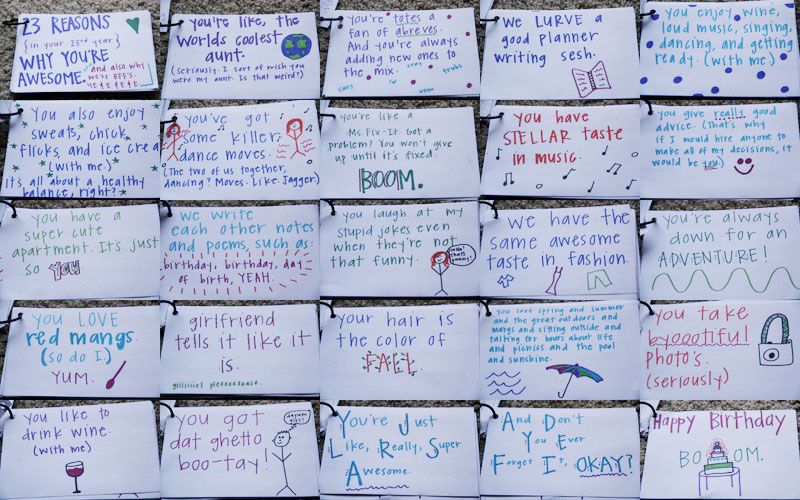 23 REASONS
{in your 23rd year}
WHY YOU'RE
AWESOME.
and also why
we're BFF's.
YEYEYEYE
You're like, the
worlds coolest
aunt.
(seriously. I sort of wish you
were my aunt. Is that weird?)
you're totes a
fan of abreves.
And you're always
adding new ones to
the mix.
vom
We LURVE a
good planner
writing sesh.
you enjoy wine,
loud music, singing,
dancing, and getting
ready. (with me)
You also enjoy
sweats, chick
flicks, and ice crea
(with me)
it's all about a healthy
balance, right?
you've got
some killer
dance moves.
(The two of us together,
dancing? Moves. Like. Jagger)
you're like a
Ms Fix-It. Got a
problem? You won't give
up until it's fixed.
BOOM.
you have
STELLAR taste
in music.
you give really good
advice. (That's why
if I would hire anyone to
make all of my decisions, it
would be you)
you have a
super cute
apartment. It's just
so YOU
we write
each other notes
and poems, such as:
birthday, birthday, day
of birth, YEAH.
you laugh at my
stupid jokes even
when they're not
that funny.
we have the
same awesome
taste in fashion.
you're always
down for an
ADVENTURE!
you LOVE
red mangs.
(so do I.)
YUM.
girlfriend
tells it like it
is.
your hair is
the color of
FALL.
you love spring and summer
and the great outdoors and
mangs and sitting outside and
talking for hours about life
and picnics and the pool
and sunshine.
you take
byoootiful
photo's.
(seriously)
you like to
drink wine.
(with me)
you got
dat ghetto
boo-tay!
You're Just
Like, Really, Super
Awesome.
And Don't
You Ever
Forget It, OKAY?
Happy Birthday
BOOOM.